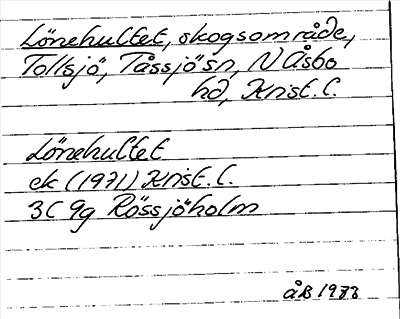 Lönehultet, skogsområde,
Tollsjö, Tåssjö sn, N Åsbo
hd, Krist. l.
Lönehultet
ek (1971) Krist. l.
3C 9g Rössjöholm
åB 1973